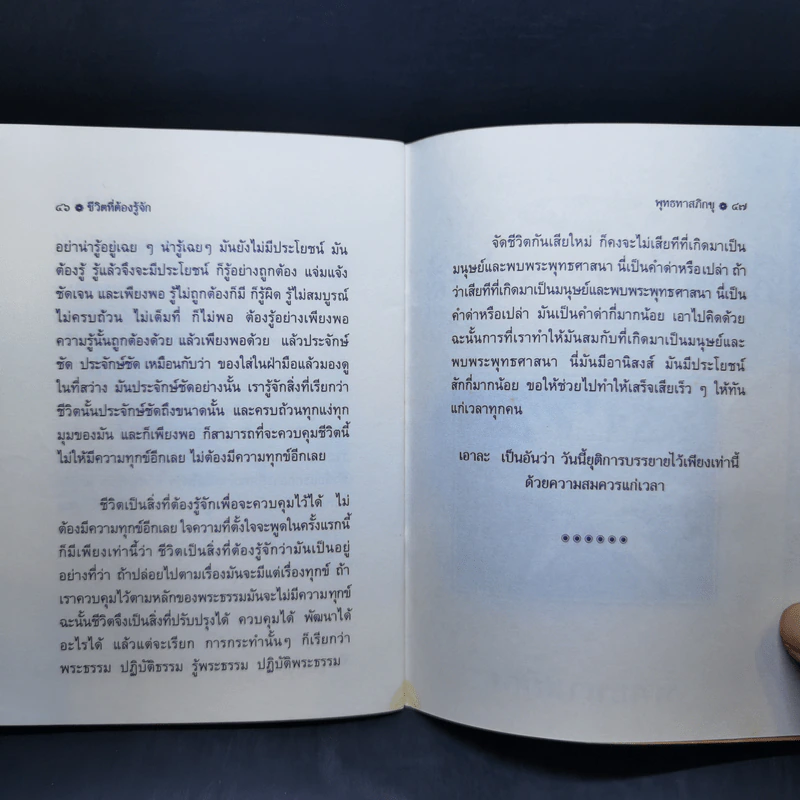 ๔๖ ชีวิตที่ต้องรู้จัก
อย่าน่ารู้อยู่เฉย ๆ น่ารู้เฉยๆ มันยังไม่มีประโยชน์ มัน
ต้องรู้ รู้แล้วจึงจะมีประโยชน์ ก็รู้อย่างถูกต้อง แจ่มแจ้ง
ชัดเจน และเพียงพอ รู้ไม่ถูกต้องก็มี ก็รู้ผิด รู้ไม่สมบูรณ์
ไม่ครบถ้วน ไม่เต็มที่ ก็ไม่พอ ต้องรู้อย่างเพียงพอ
ความรู้นั้นถูกต้องด้วย แล้วเพียงพอด้วย แล้วประจักษ์
ชัด ประจักษ์ชัด เหมือนกับว่า ของใส่ในฝ่ามือแล้วมองดู
ในที่สว่าง มันประจักษ์ชัดอย่างนั้น เรารู้จักสิ่งที่เรียกว่า
ชีวิตนั้นประจักษ์ชัดถึงขนาดนั้น และครบถ้วนทุกแง่ทุก
มุมของมัน และก็เพียงพอ ก็สามารถที่จะควบคุมชีวิตนี้
ไม่ให้มีความทุกข์อีกเลย ไม่ต้องมีความทุกข์อีกเลย
ชีวิตเป็นสิ่งที่ต้องรู้จักเพื่อจะควบคุมไว้ได้ ไม่
ต้องมีความทุกข์อีกเลย ใจความที่ตั้งใจจะพูดในครั้งแรกนี้
ก็มีเพียงเท่านี้ว่า ชีวิตเป็นสิ่งที่ต้องรู้จักว่ามันเป็นอยู่
อย่างที่ว่า ถ้าปล่อยไปตามเรื่องมันจะมีแต่เรื่องทุกข์ ถ้า
เราควบคุมไว้ตามหลักของพระธรรมมันจะไม่มีความทุกข์
ฉะนั้นชีวิตจึงเป็นสิ่งที่ปรับปรุงได้ ควบคุมได้ พัฒนาได้
อะไรได้ แล้วแต่จะเรียก การกระทำนั้นๆ ก็เรียกว่า
พระธรรม ปฏิบัติธรรม รู้พระธรรม ปฏิบัติพระธรรม
พุทธทาสภิกขุ ๔๗
จัดชีวิตกันเสียใหม่ ก็คงจะไม่เสียทีที่เกิดมาเป็น
มนุษย์และพบพระพุทธศาสนา นี่เป็นคำด่าหรือเปล่า ถ้า
ว่าเสียทีที่เกิดมาเป็นมนุษย์และพบพระพุทธศาสนา นี่เป็น
คำด่าหรือเปล่า มันเป็นคำด่ากี่มากน้อย เอาไปคิดด้วย
ฉะนั้นการที่เราทำให้มันสมกับที่เกิดมาเป็นมนุษย์และ
พบพระพุทธศาสนา นี่มันมีอานิสงส์ มันมีประโยชน์
สักกี่มากน้อย ขอให้ช่วยไปทำให้เสร็จเสียเร็ว ๆ ให้ทัน
แก่เวลาทุกคน
เอาละ เป็นอันว่า วันนี้ยุติการบรรยายไว้เพียงเท่านี้
ด้วยความสมควรแก่เวลา